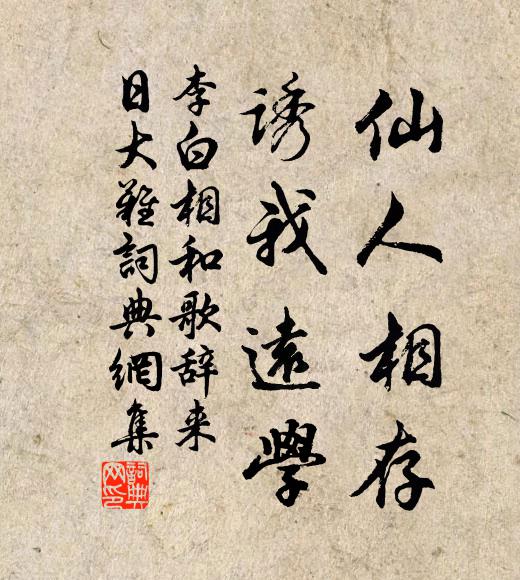 仙人相存
誘我遠學
李白相和歌辞来
日大難詞典網集
詞典
网印